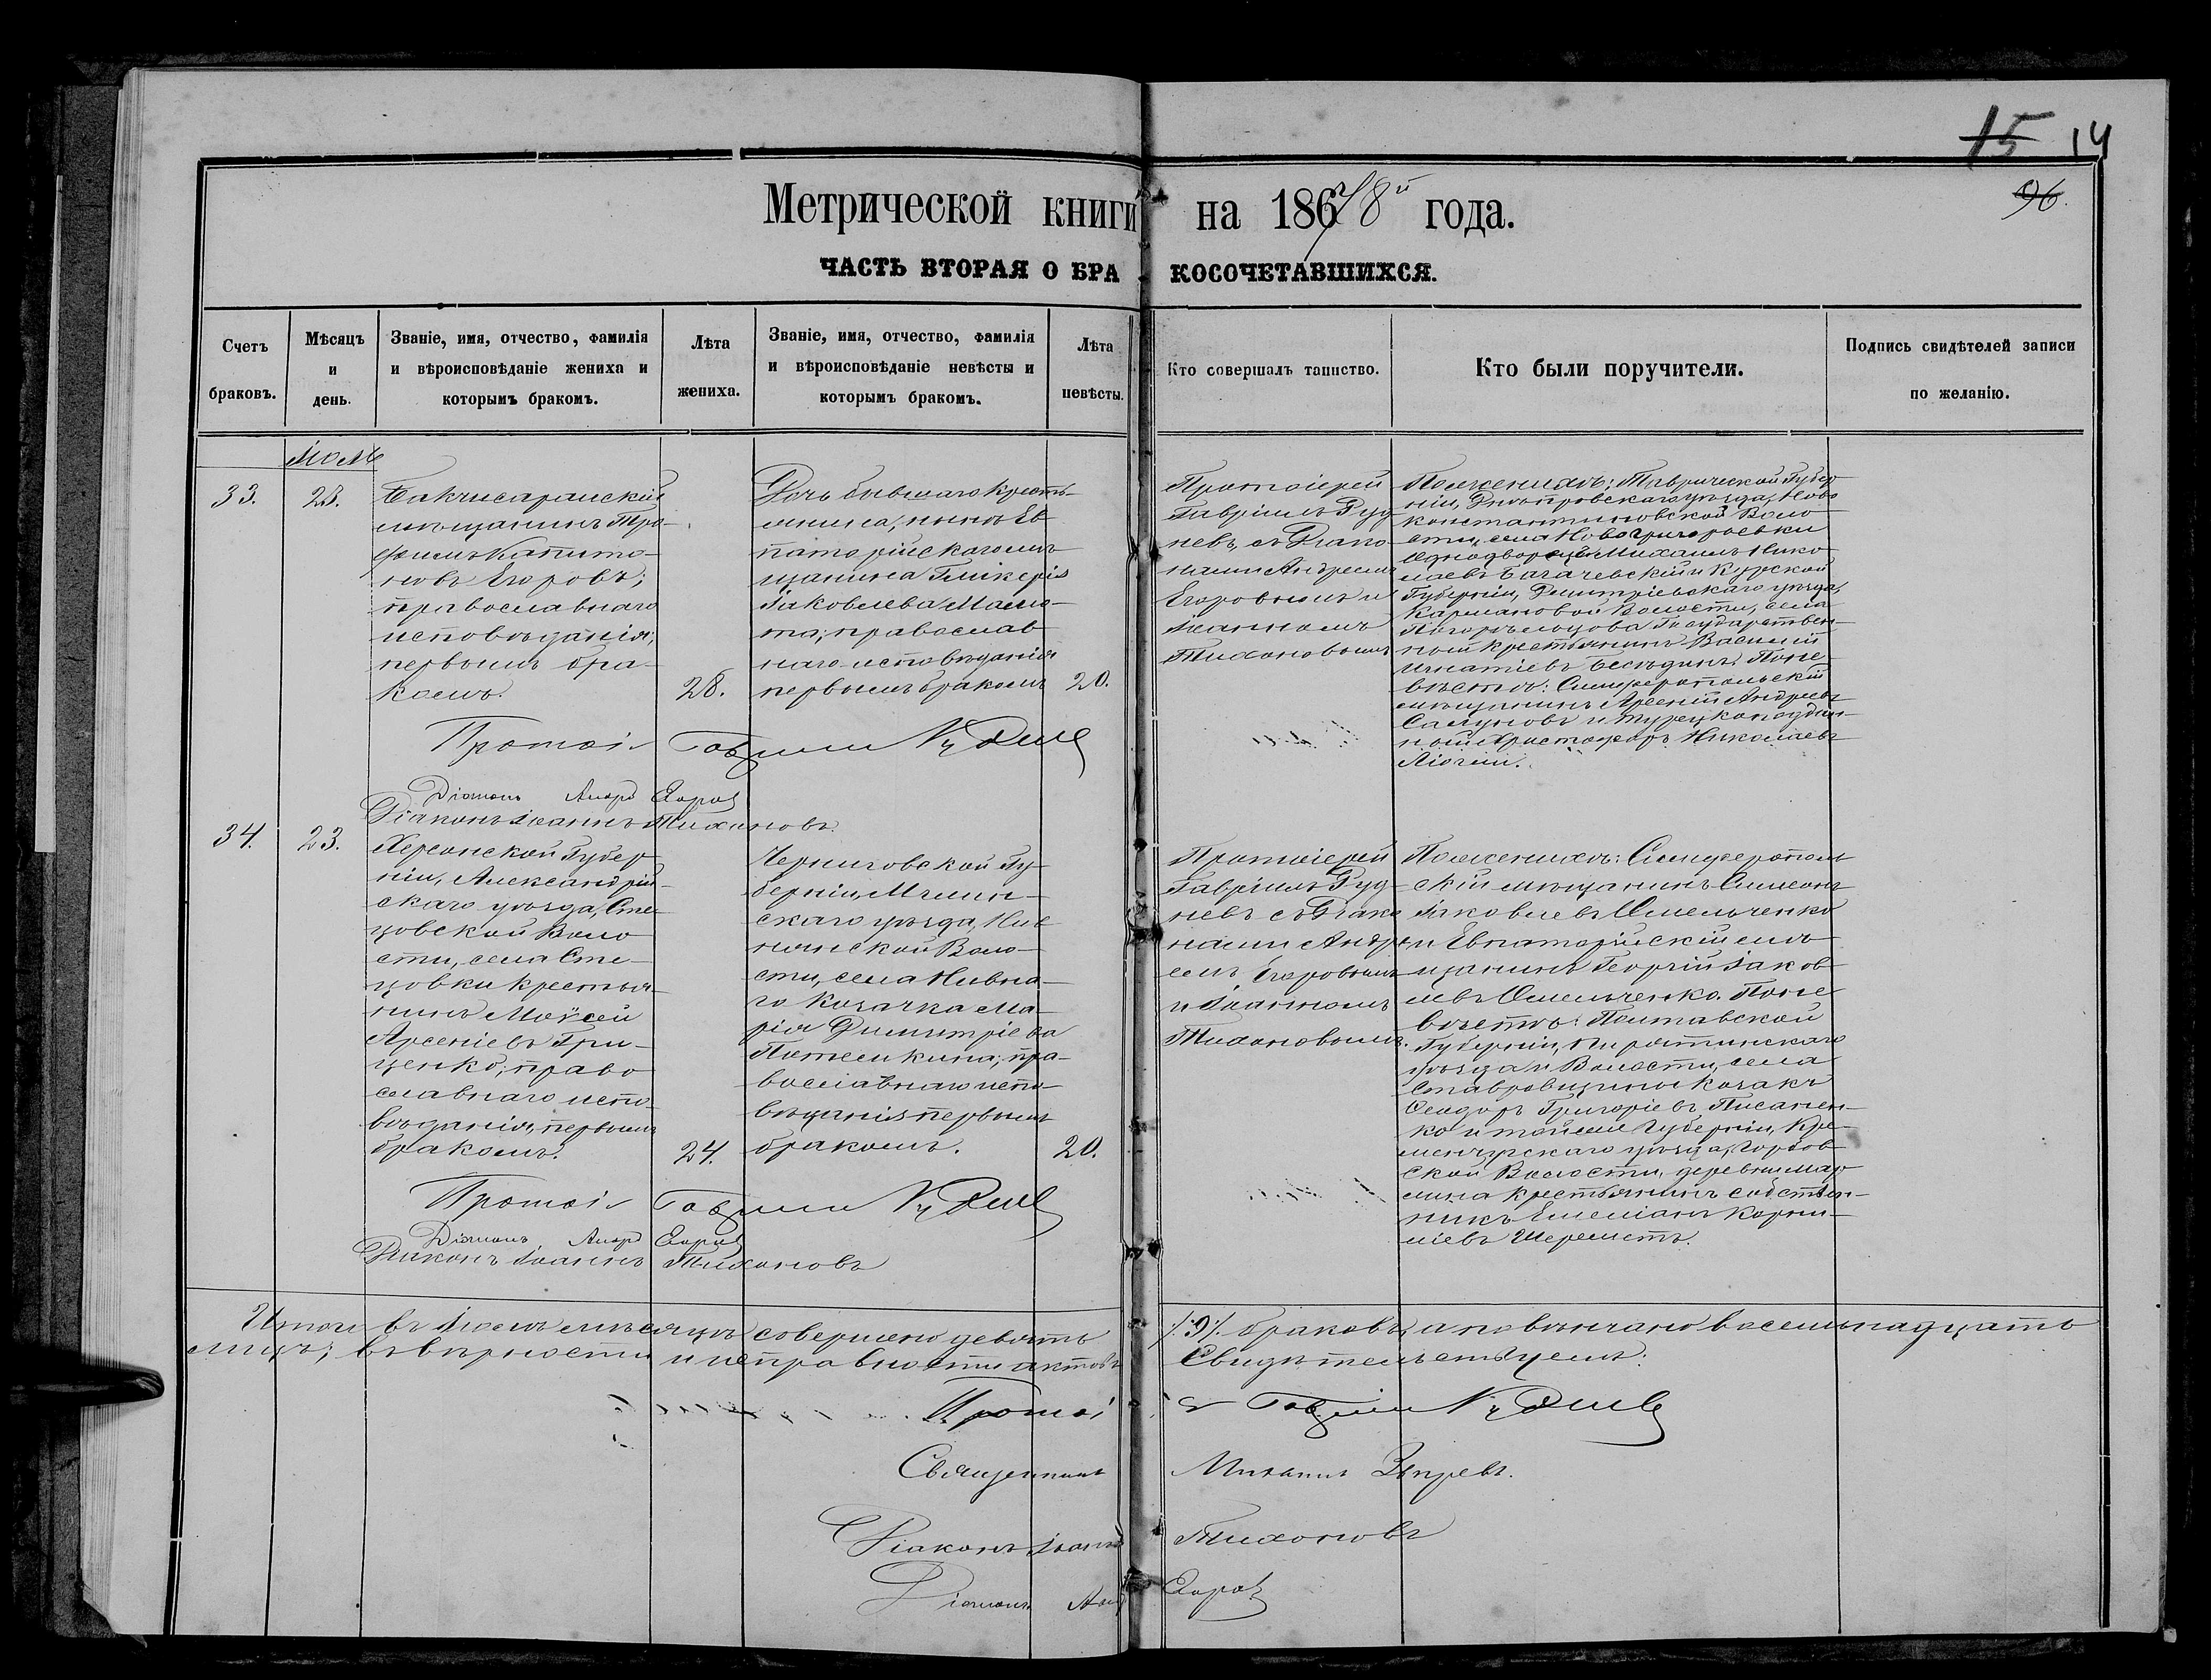 15 14
96.
Метрической книги на 1867/8й года.
ЧАСТЬ ВТОРАЯ О БРАКОСОЧЕТАВШИХСЯ.
Счетъ браковъ.
Мѣсяцъ и день.
Званіе, имя, отчество, фамилія
и вѣроисповѣданіе жениха и
которымъ бракомъ.
Лѣта жениха.
Званіе, имя, отчество, фамилія
и вѣроисповѣданіе невѣсты и
которымъ бракомъ.
Лѣта невѣсты.
Кто совершалъ таинство.
Кто были поручители.
Подпись свидѣтелей записи
по желанію.
33.
23.
Бакчисарайскій
мѣщанинъ Тро-
фимъ Капито-
новъ Егоровъ;
православнаго
исповѣданія;
первымъ бра-
комъ.
28.
Дочь бывшаго крестъ-
янина, нынѣ Ев
паторійскаго мѣ
щанина Гликерія
Іаковлева
православ
наго исповѣданія
первымъ бракомъ
20.
Протоіерей
Гавріилъ Руд
невъ, съ Діако
нами Андреемъ
Егоровымъ и
Іоанномъ
Тихоновымъ
По женихѣ: Таврической Губер
ніи, Днѣпровскаго уѣзда, Ново
константиновской Воло
сти, села Новогригорьевки
однодворецъ Михаилъ Нико
лаевъ Багачевскій и Курской
Губерніи, Дмитріевскаго уѣзда,
Кармановой Волости, села
Погорѣльцова Государствен
ный крестьянинъ Василій
Игнатіевъ Бесѣдинъ. По не
вѣстѣ: Симферопольскій
мѣщанинъ Арсеній Андреевъ
Салуновъ и турецкоподдан
ный Христофоръ Николаевъ
Протоі Гавріилъ Рудневъ
Діаконъ Андр Егоров
Діаконъ Іоаннъ Тихоновъ.
34.
23.
Херсонской Губер
ніи, Александрій-
скаго уѣзда, Сте-
цовской Воло
сти, села Сте-
цовки крестья-
нинъ Моисей
Арсеніевъ Гри-
ценко; право
славнаго испо-
вѣданія, первымъ
бракомъ.
24.
Черниговской Гу-
берніи, Мглин-
скаго уѣзда, Нив
нянской Воло-
сти, села Нивна-
го козачка Ма-
рія Димитріева
Потемкина; пра-
вославнаго испо-
вѣданія первымъ
бракомъ.
20.
Протоіерей
Гавріилъ Руд
невъ съ Діако
нами Андре
емъ Егоровымъ
и Іоанномъ
Тихоновымъ.
По женихѣ: Симферополь
скій мѣщанинъ Симеонъ
Іаковлевъ Омельченко
и Евпаторійскій мѣ
щанинъ Георгій Іаков
левъ Омельченко. По не
вѣстѣ: Полтавской
Губерніи, Пирятинскаго
уѣзда и Волости, села
Ставровщины козакъ
Ѳеодоръ Григоріевъ Писарен-
ко и той же Губерніи, Кре-
менчугскаго уѣзда,
ской Волости, деревни
крестьянинъ собствен-
никъ Емеліанъ Корни-
ліевъ Шереметъ.
Протоі Гавріилъ Рудневъ
Діаконъ Андр Егоров
Діаконъ Іоаннъ Тихоновъ
Итого въ Іюлѣ мѣсяцѣ совершено девять /:9:/ браковъ, а повѣнчано восемьнадцать
лицъ; въ вѣрности и исправности актовъ Свидѣтельствуемъ:
Протоі Гавріилъ Рудневъ
Священникъ Михаилъ Звѣревъ.
Діаконъ Іоаннъ Тихоновъ
Діаконъ Анд Егоров